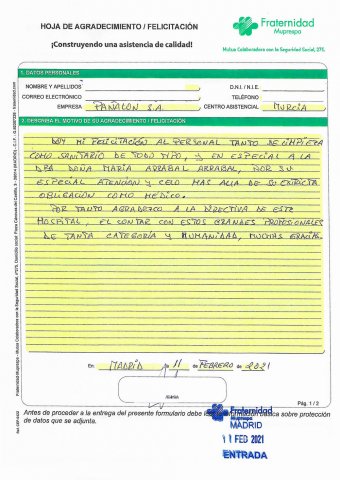 HOJA DE AGRADECIMIENTO / FELICITACIÓN
¡Construyendo una asistencia de calidad!
Fraternidad
Muprespa
Mutua Colaboradora con la Seguridad Social, 275.
1. DATOS PERSONALES
NOMBRE Y APELLIDOS
D.N.I. / N.I.E.
CORREO ELECTRÓNICO
TELÉFONO
EMPRESA PAÑALON S.A.
CENTRO ASISTENCIAL MURCIA
2. DESCRIBA EL MOTIVO DE SU AGRADECIMIENTO / FELICITACIÓN
DOY MI FELICITACION AL PERSONAL TANTO DE LIMPIEZA
COMO SANITARIO DE TODO TIPO, Y EN ESPECIAL A LA
DRA DOÑA MARIA ARRABAL ARRABAL, POR SU
ESPECIAL ATENCION Y CELO MAS ALLA DE SU EXTRICTA
OBLIGACION COMO MEDICO.
POR TANTO AGRADEZCO A LA DIRECTIVA DE ESTE
HOSPITAL, EL CONTAR CON ESTOS GRANDES PROFESIONALES
DE TANTA CATEGORIA Y HUMANIDAD, MUCHAS GRACIAS.
En MADRID, de 11 de FEBRERO de 2021
FIRMA
Pág. 1 / 2
Antes de proceder a la entrega del presente formulario debe información básica sobre protección
de datos que se adjunta.
Fraternidad
Muprespa
MADRID
11 FEB 2021
ENTRADA